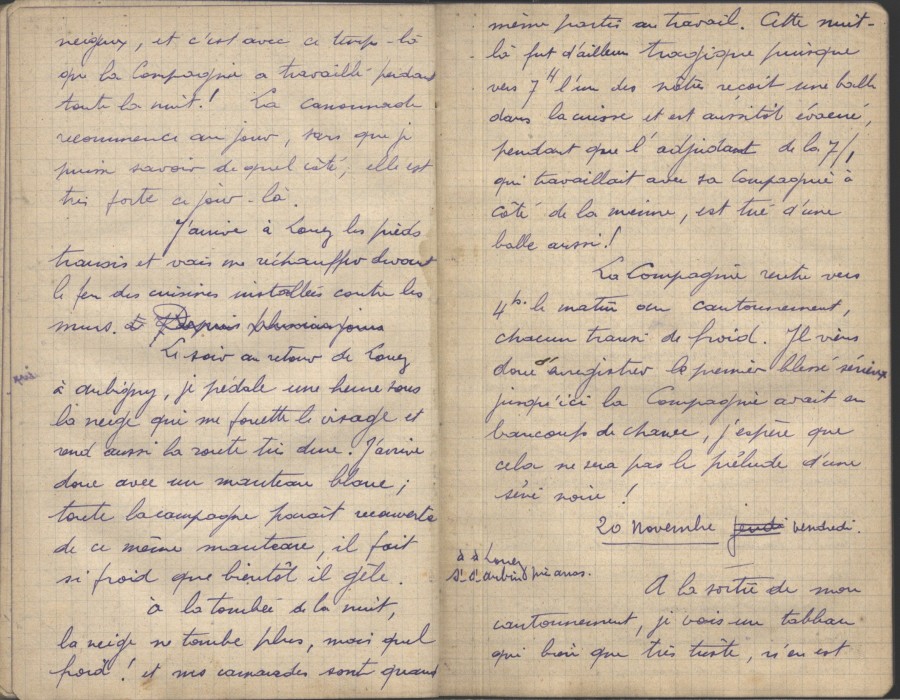 neigeux, et c'est avec ce temps-là
que la Compagnie a travaillé pendant
toute la nuit! La canonnade
recommence au jour, sans que je
puisse savoir de quel côté, elle est
très forte ce jour-là.
J'arrive à Louez les pieds
transis et vais me réchauffer devant
le feu des cuisines installées contre les
murs. et Depuis plusieurs jours
Le soir au retour de Louez
à Aubigny, je pédale une heure sous
la neige qui me fouette le visage et
rend aussi la route très dure. J'arrive
donc avec un manteau blanc;
toute la campagne paraît recouverte
de ce même manteau, il fait
si froid que bientôt il gèle.
à la tombée de la nuit,
la neige ne tombe plus, mais quel
froid! et mes camarades sont quand
même partis au travail. Cette nuit-
là fut d'ailleurs tragique puisque
vers 7H l'un des nôtres reçoit une balle
dans la cuisse et est aussitôt évacué,
pendant que l'adjudant de la 7/1
qui travaillait avec sa Compagnie à
côté de la mienne, est tué d'une
balle aussi!
La Compagnie rentre vers
4h. le matin au cantonnement,
chacun transi de froid. Il vient
donc d'enregistrer le premier blessé sérieux
jusqu'ici la Compagnie avait eu
beaucoup de chance, j'espère que
cela ne sera pas le prélude d'une
série noire!
20 novembre jeudi vendredi.
à Louez
St Aubin près Arras.
A la sortie de mon
cantonnement, je vois un tableau
qui bien que très triste, n'en est